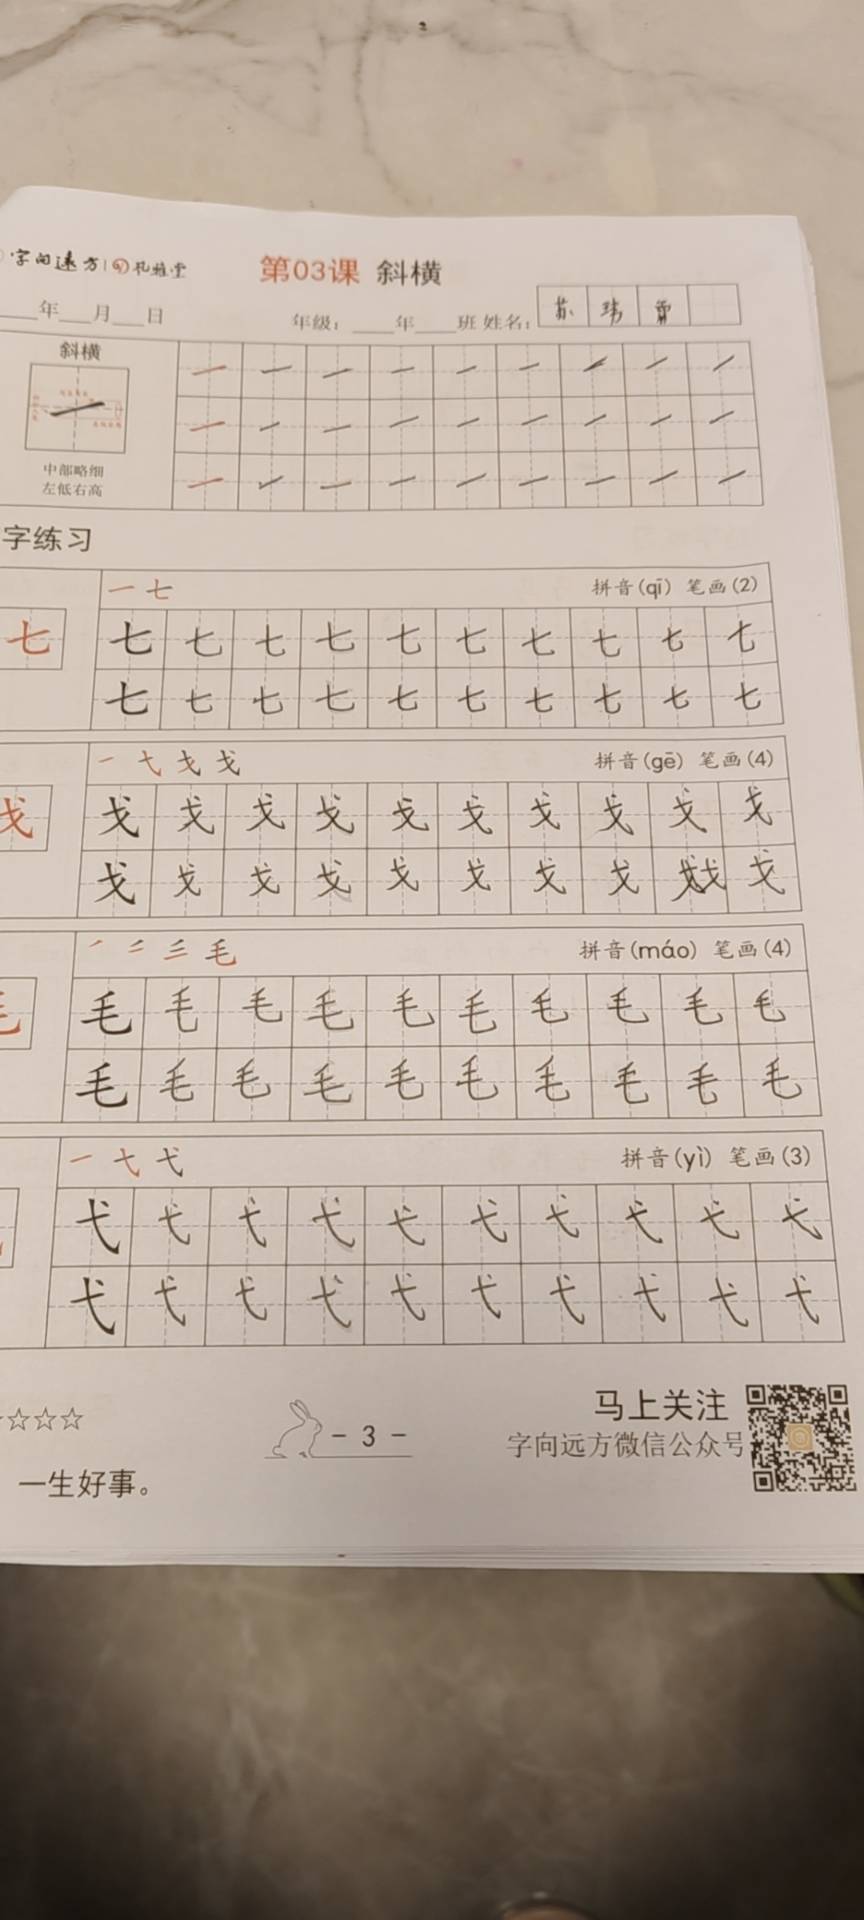 字向远方 | 礼雅堂 第03课 斜横
年 月 日 年级: 年 班 姓名: 苏 玮
斜横
中部略细
左低右高
字练习
一 七 拼音(qī) 笔画(2)
七 七 七 七 七 七 七 七 七 七 七
七 七 七 七 七 七 七 七 七 七
一 弋 戈 戈 拼音(gē) 笔画(4)
戈 戈 戈 戈 戈 戈 戈 戈 戈 戈 戈
戈 戈 戈 戈 戈 戈 戈 戈 戈 戈
毛 拼音(máo) 笔画(4)
毛 毛 毛 毛 毛 毛 毛 毛 毛 毛
毛 毛 毛 毛 毛 毛 毛 毛 毛 毛
一 弋 弋 拼音(yì) 笔画(3)
弋 弋 弋 弋 弋 弋 弋 弋 弋 弋
弋 弋 弋 弋 弋 弋 弋 弋 弋 弋
☆☆☆ - 3 - 马上关注
字向远方微信公众号
一生好事。